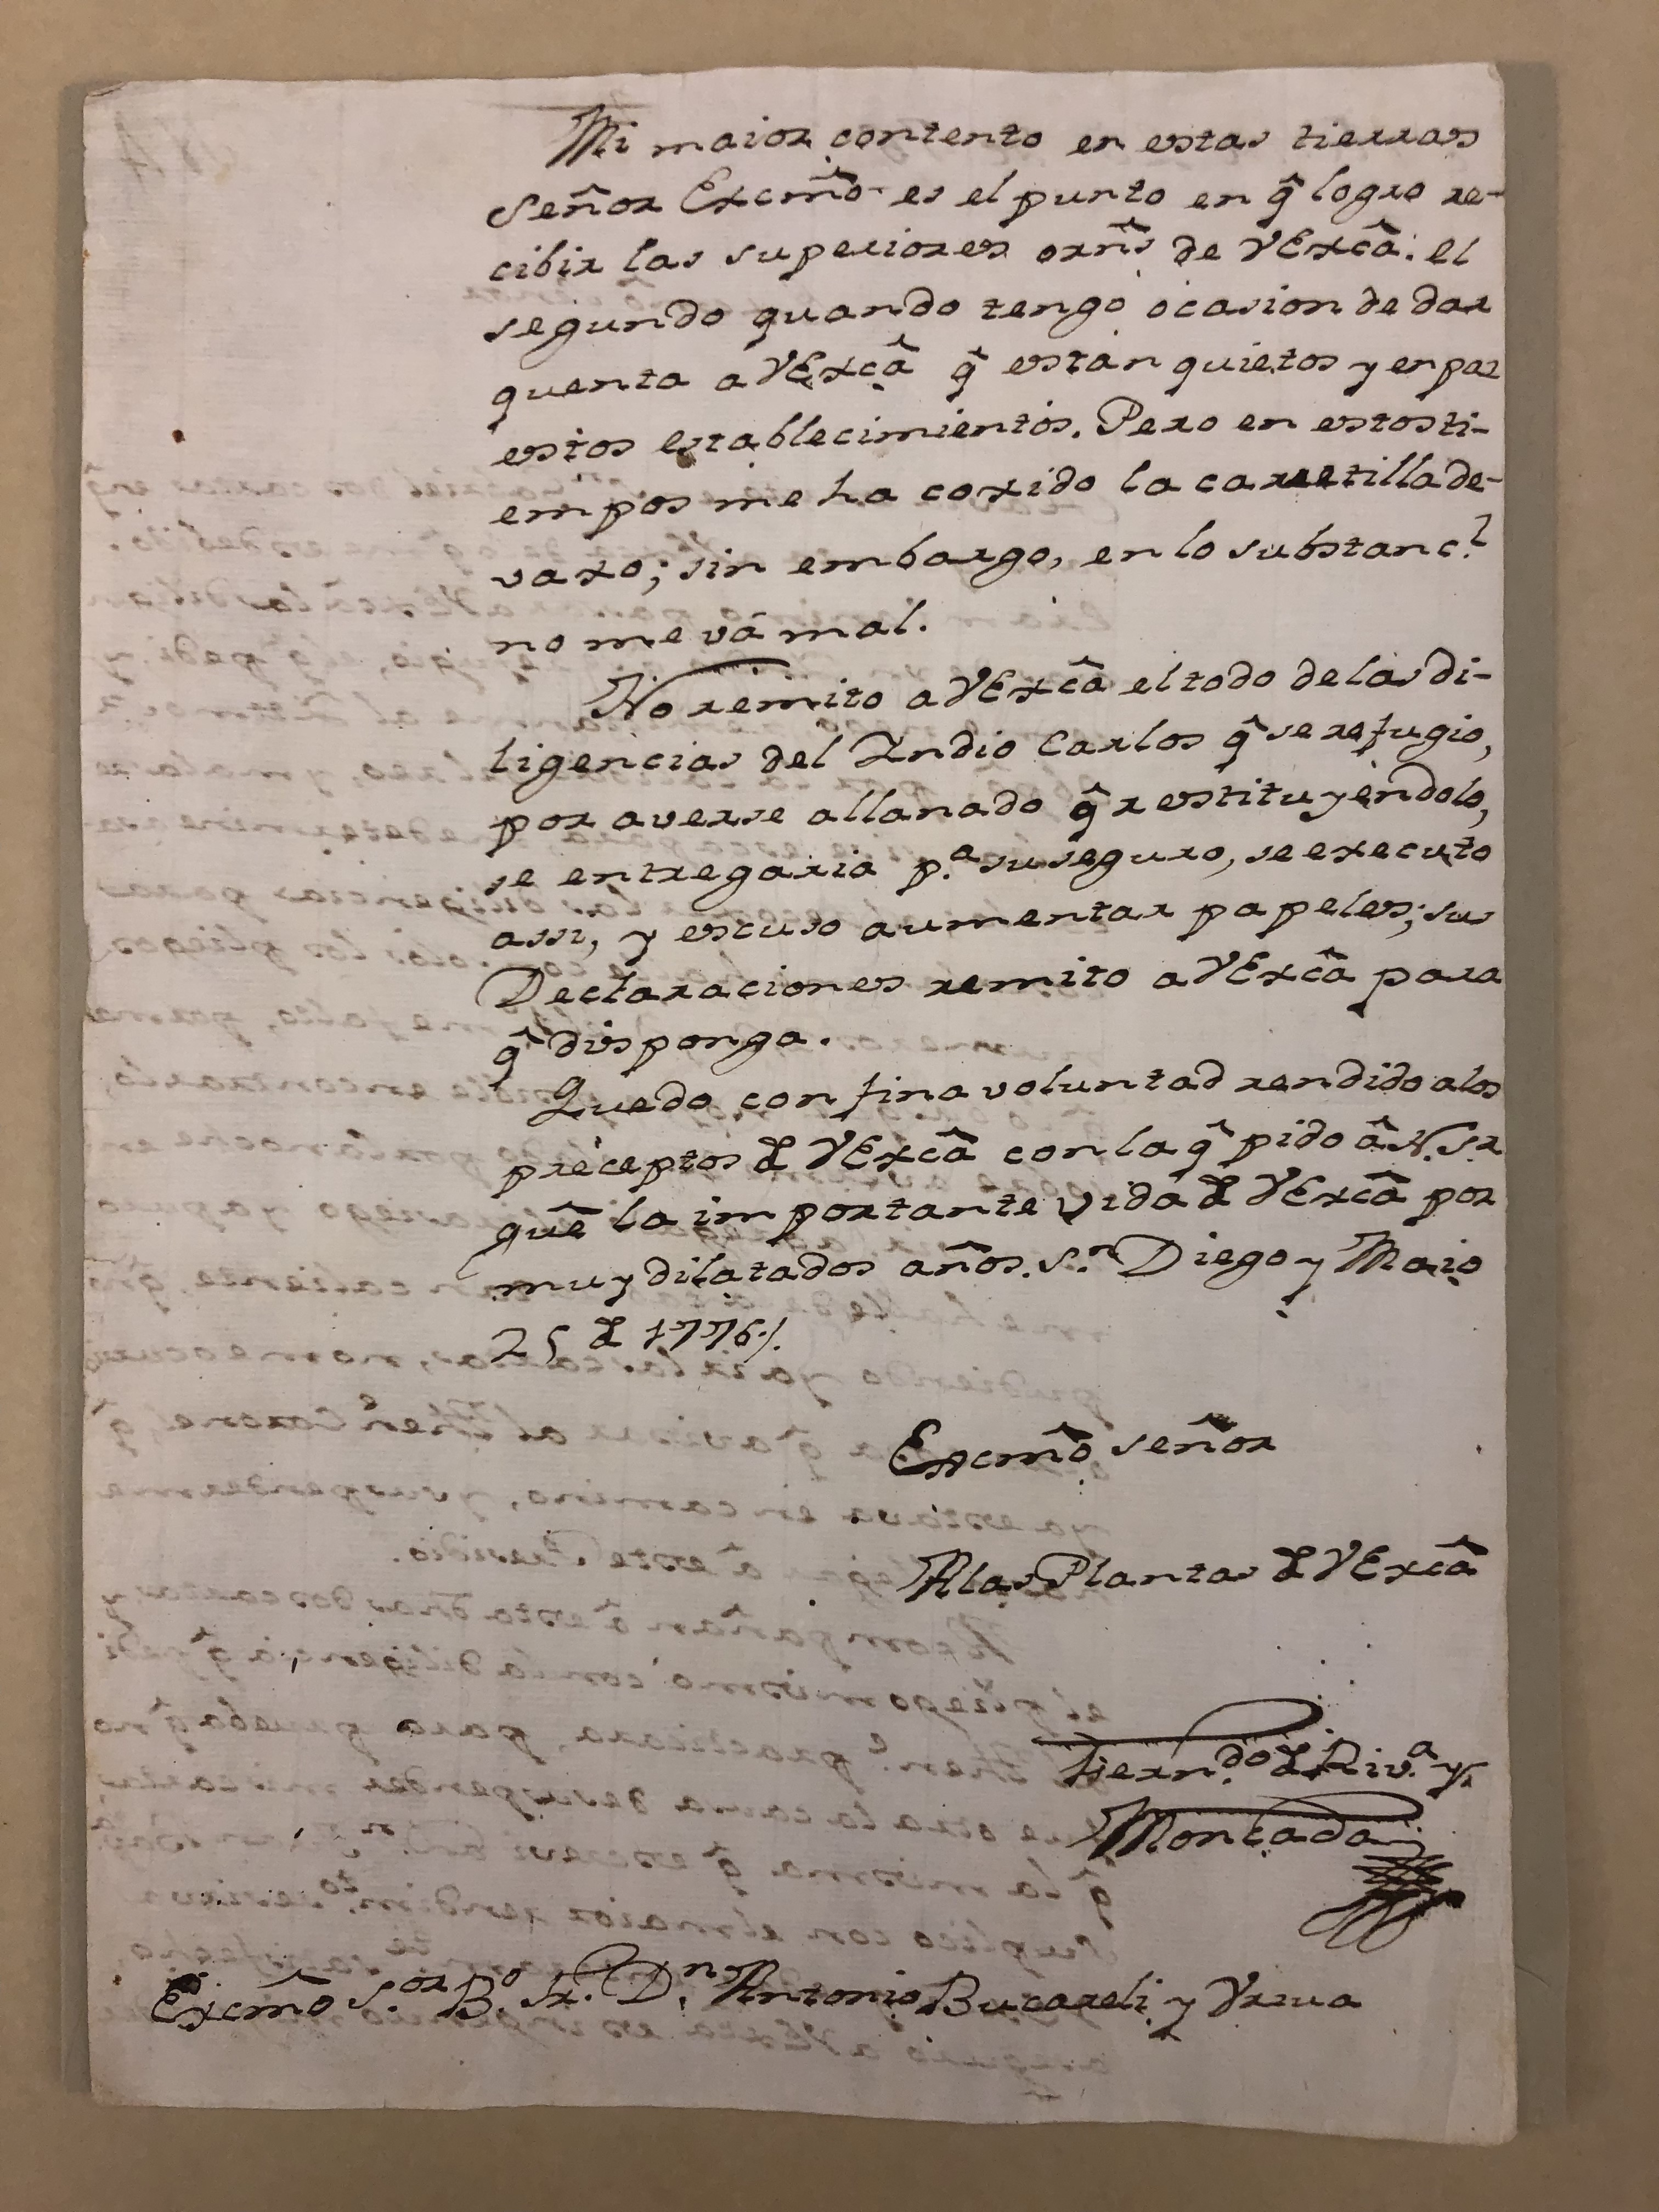 Mi maior contento en estas tierras
señor Excmô es el punto en q̂ logro re-
cibir las superiores orn̂s de VExcâ: el
segundo quando tengo ocasion de dar
quenta a VExcâ q̂ están quietos y en paz
estos establecimientos. Pero en estos ti-
empos me ha corrido la carretilla de-
vaxo; sin embargo, en lo substanc.l
no me vá mal.
No remito a VExcâ el todo de las di-
ligencias del Indio Carlos q̂ se refugio,
por averse allanado q̂ restituyéndolo,
se entregaria p.a su seguro, se executo
assi, y escuso aumentar papeles; sus
Declaraciones remito a VExcâ para
q̂ disponga.
Quedo con fina voluntad rendido a los
preceptos d VExcâ con la q̂ pido â N. Sr
guê la importante vida d VExcâ por
muy dilatados años. S.n Diego y Maio
25 d 1776/.
Excmô señor
A las Plantas d VExcâ
Fern.do d Riv.a y
Moncada
Excmô S.or B.o Fr. D.n Antonio Bucareli y Vrsua